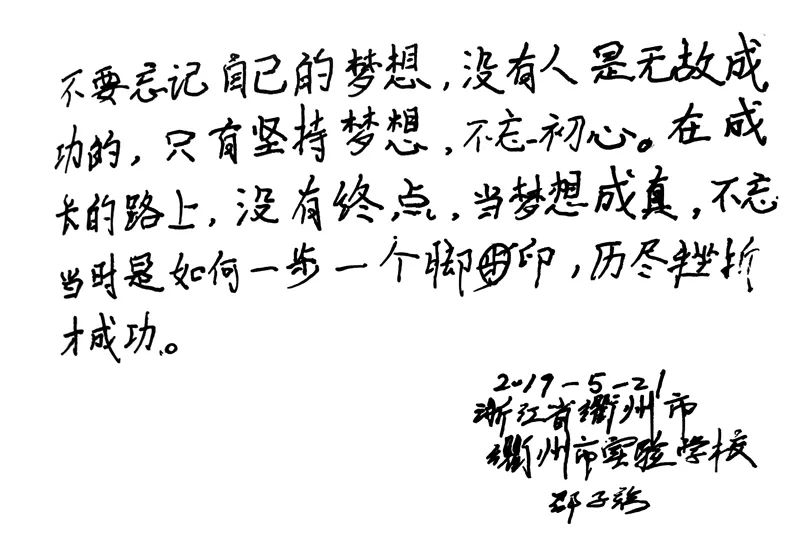 不要忘记自己的梦想，没有人是无故成
功的，只有坚持梦想，不忘初心。在成
长的路上，没有终点，当梦想成真，不忘
当时是如何一步一个脚印，历尽挫折
才成功。
2019-5-21
浙江省衢州市
衢州市实验学校